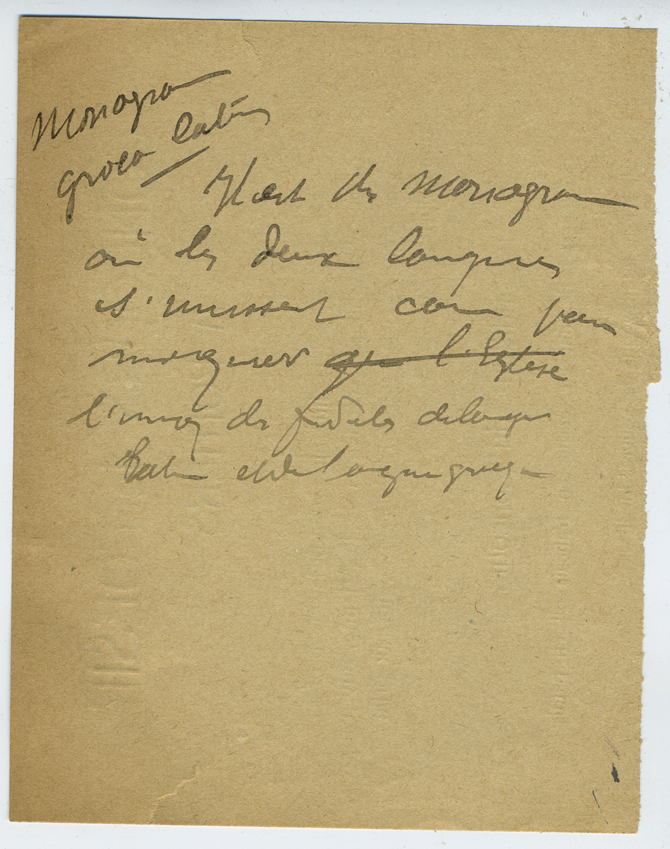 Monogram
greco latins
Il est des monogram
où les deux langues
s'unissent comme pour
marquer que l'Eglise
l'union des fidèles de langue
latine et de langue grecque